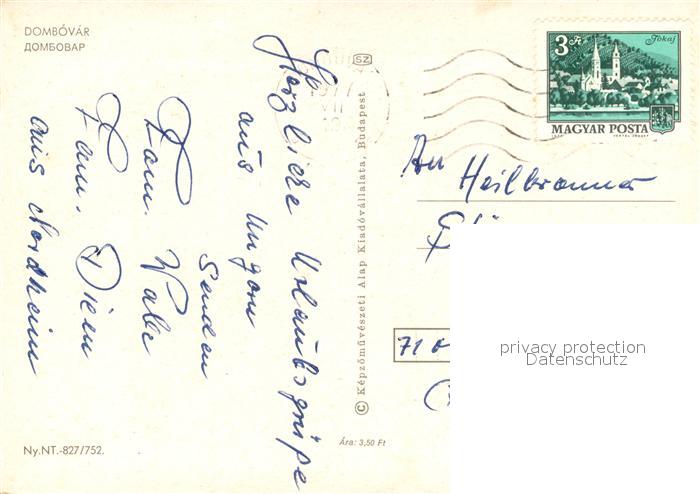 DOMBÓVÁR
ДОМБОВАР
Herzliche Urlaubsgrüße
aus Ungarn
senden
Fam. Walz
Fam. Diem
aus Nordheim
Ny.NT.-827/752.
SZ
© Képzőművészeti Alap Kiadóvállalata, Budapest
Ára: 3,50 Ft
3 Ft
Tokaj
MAGYAR POSTA
An Heilbronner
71
privacy protection
Datenschutz